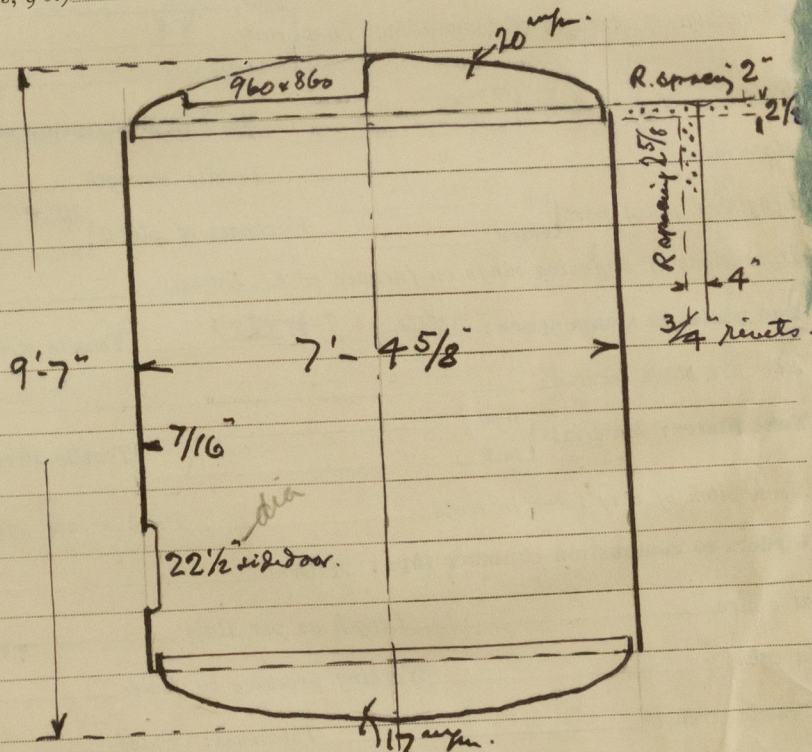 20 m/m.
960 x 860
R. spacing 2"
R spacing 2 5/8
4"
3/4" rivets.
9'-7"
7'- 4 5/8"
7/16"
dia
22 1/2" sidedoor.
17 m/m.